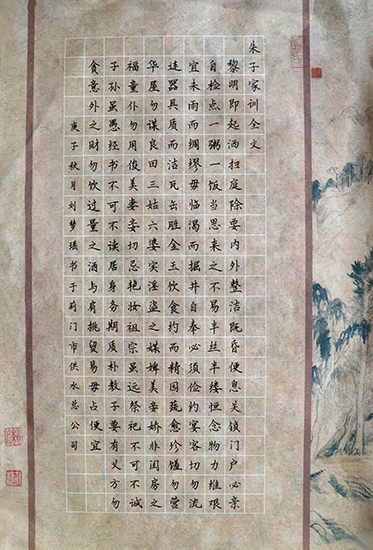 朱子家训全文
黎明即起洒扫庭除要内外整洁既昏便息关锁门户必亲
自检点一粥一饭当思来之不易半丝半缕恒念物力维艰
宜未雨而绸缪毋临渴而掘井自奉必须俭约宴客切勿流
连器具质而洁瓦缶胜金玉饮食约而精园蔬愈珍馐勿营
华屋勿谋良田三姑六婆实淫盗之媒婢美妾娇非闺房之
福童仆勿用俊美妻妾切忌艳妆祖宗虽远祭祀不可不诚
子孙虽愚经书不可不读居身务期质朴教子要有义方勿
贪意外之财勿饮过量之酒与肩挑贸易毋占便宜
庚子秋月刘梦瑶书于荆门市供水总公司